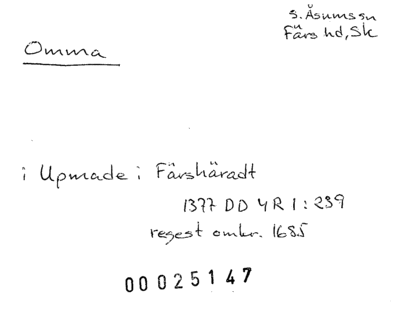 S. Åsumssn
Färs hd, Sk
Omma
i Upmade i Färshäradt
1377 DD 4 R 1 : 239
regest omkr. 1685
00025147